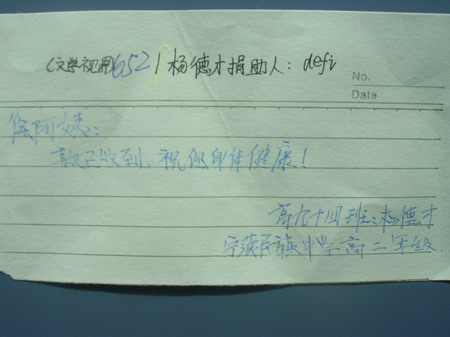 652 杨德才捐助人: defi
No.
Date
徐阿姨:
款已收到,祝您身体健康!
高九十四班:杨德才
宁蒗民族中学高二年级